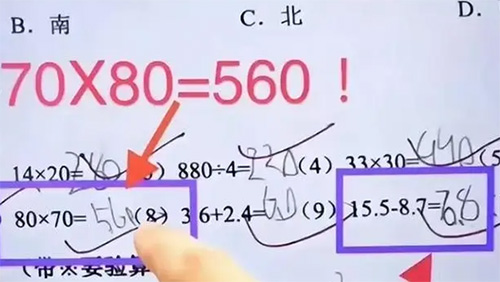 B. 南 C. 北 D.
70X80=560！
14×20=280 ) 880÷4=220(4) 33×30= (5
80×70=560(8) 3.6+2.4=6.0(9) 15.5-8.7=6.8
(带※要验算